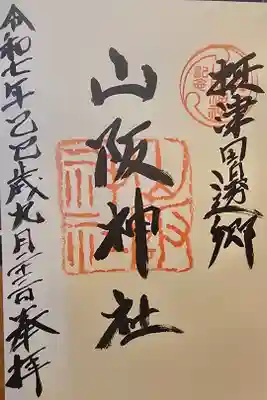 摂津国田邊郷
山阪神社
令和七年乙巳歳九月二十二日奉拝